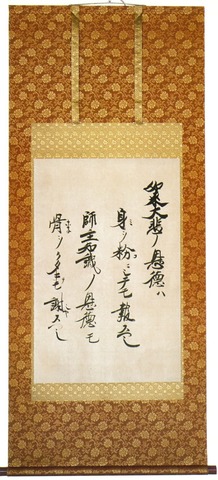 如来大悲ノ恩徳ハ
身ヲ粉ニシテモ報スヘシ
師主知識ノ恩徳モ
骨ヲクタキテモ謝スヘシ